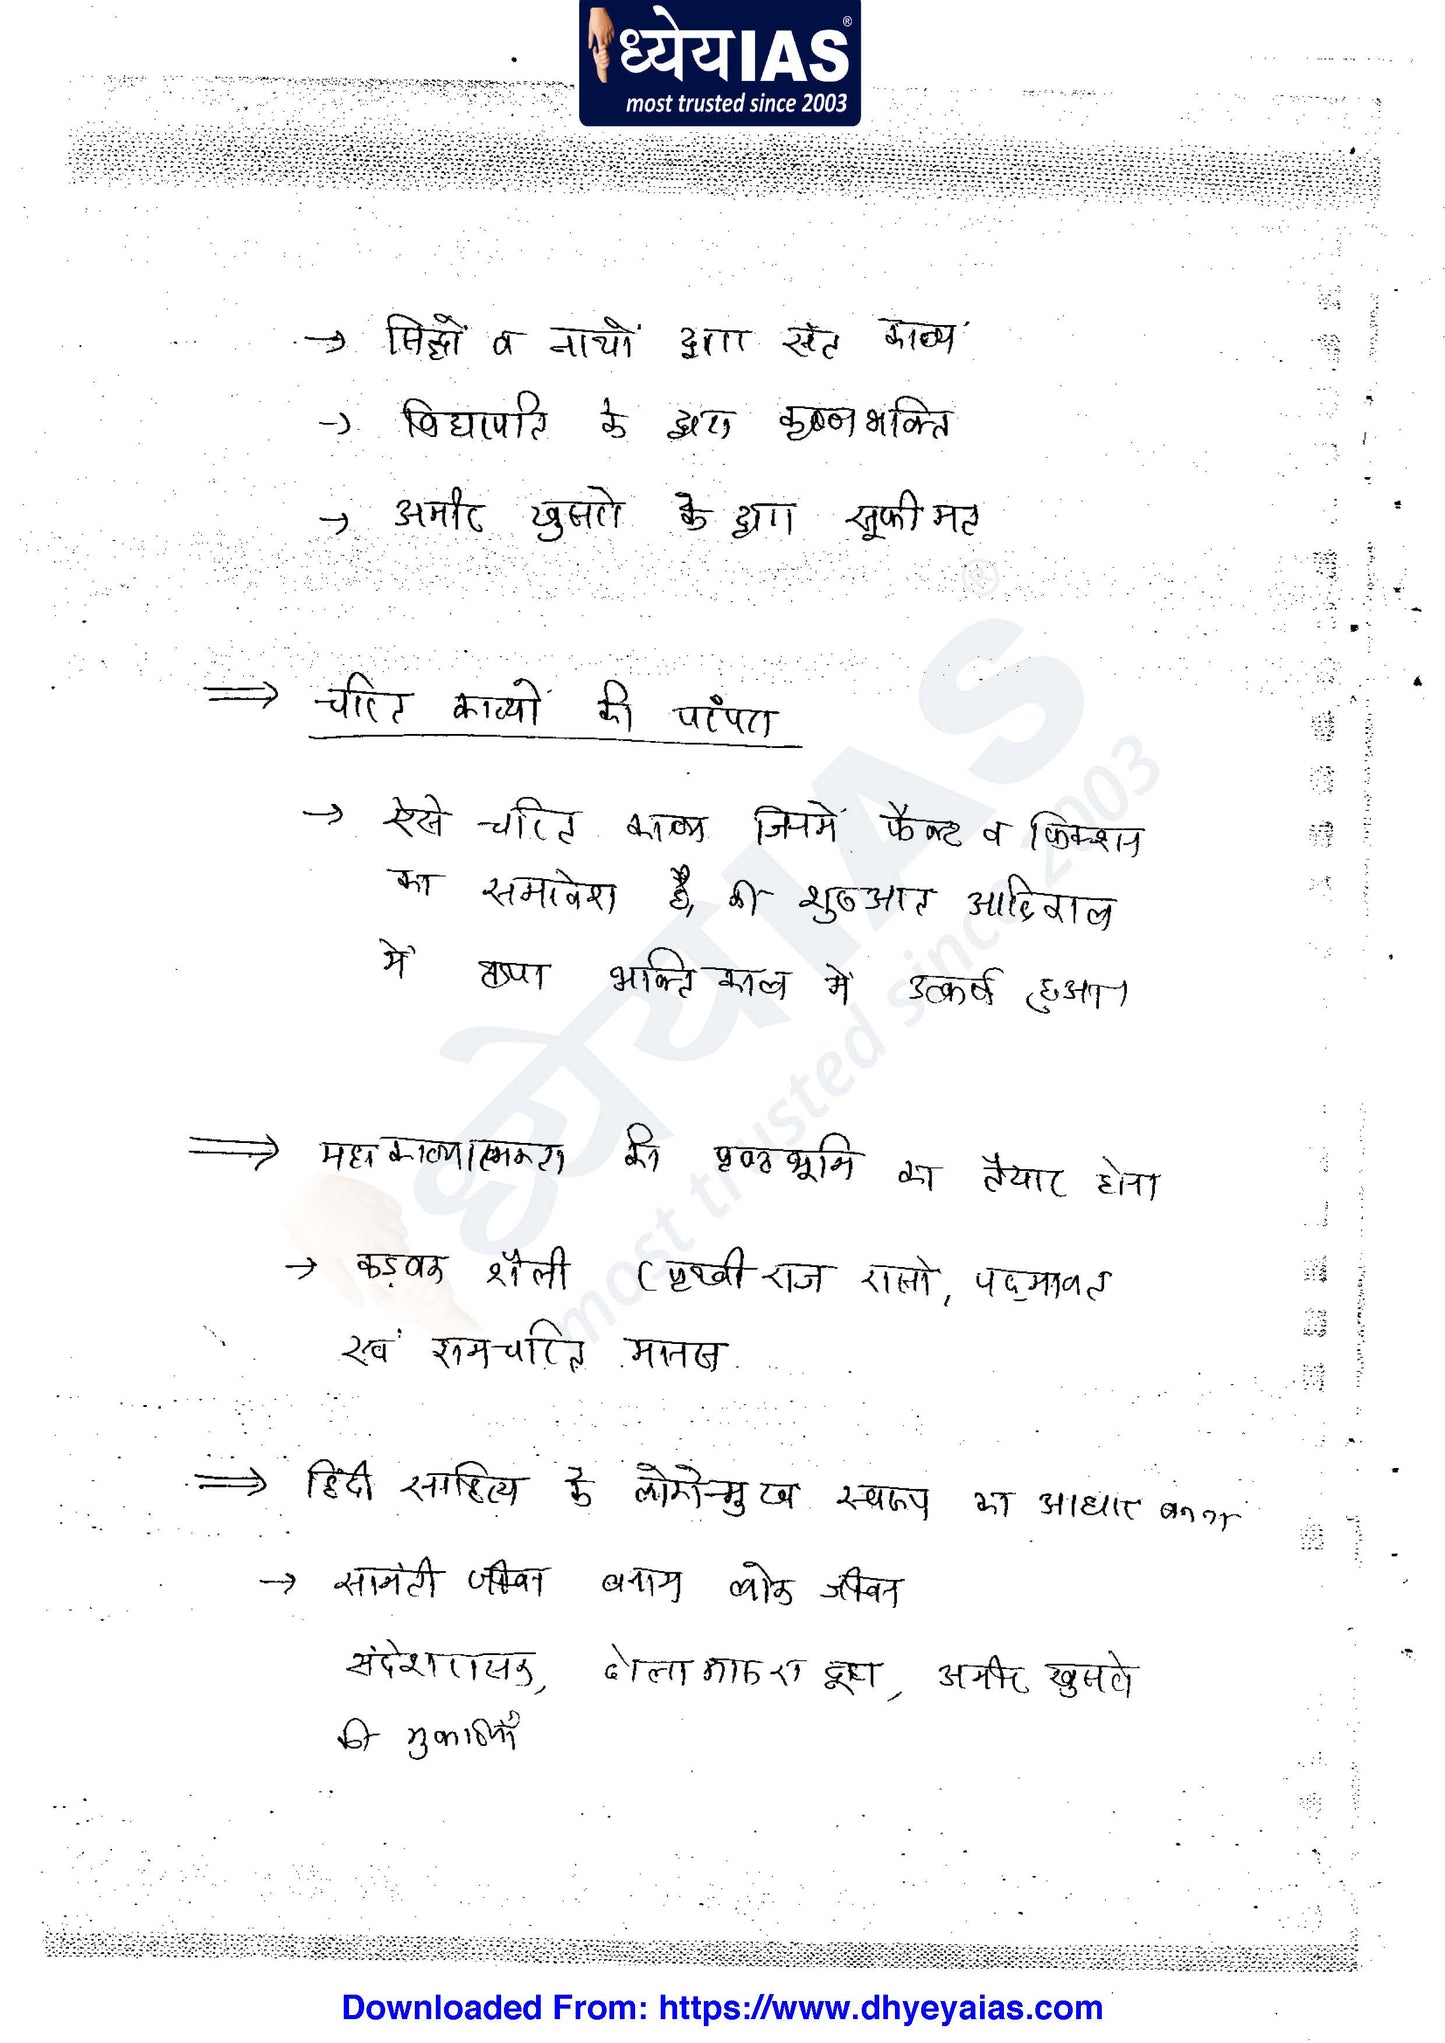 ध्येयIAS®
most trusted since 2003
→ सिद्धों व नाथों द्वारा संत काव्य
→ विद्यापति के द्वारा कृष्णभक्ति
→ अमीर खुसरो के द्वारा सूफी मत
⇒ चरित काव्यों की परंपरा
→ ऐसे चरित काव्य जिनमें फैक्ट व फिक्शन
का समावेश है, की शुरुआत आदिकाल
में तथा भक्तिकाल में उत्कर्ष हुआ।
⇒ महाकाव्यात्मकता की पृष्ठभूमि का तैयार होना
→ कड़वक शैली (पृथ्वीराज रासो, पद्मावत
एवं रामचरित मानस
⇒ हिंदी साहित्य के लोकोन्मुख स्वरूप का आधार बनना
→ सामंती जीवन बनाम लोक जीवन
संदेशरासक, ढोला मारू रा दूहा, अमीर खुसरो
की मुकरियाँ
Downloaded From: https://www.dhyeyaias.com